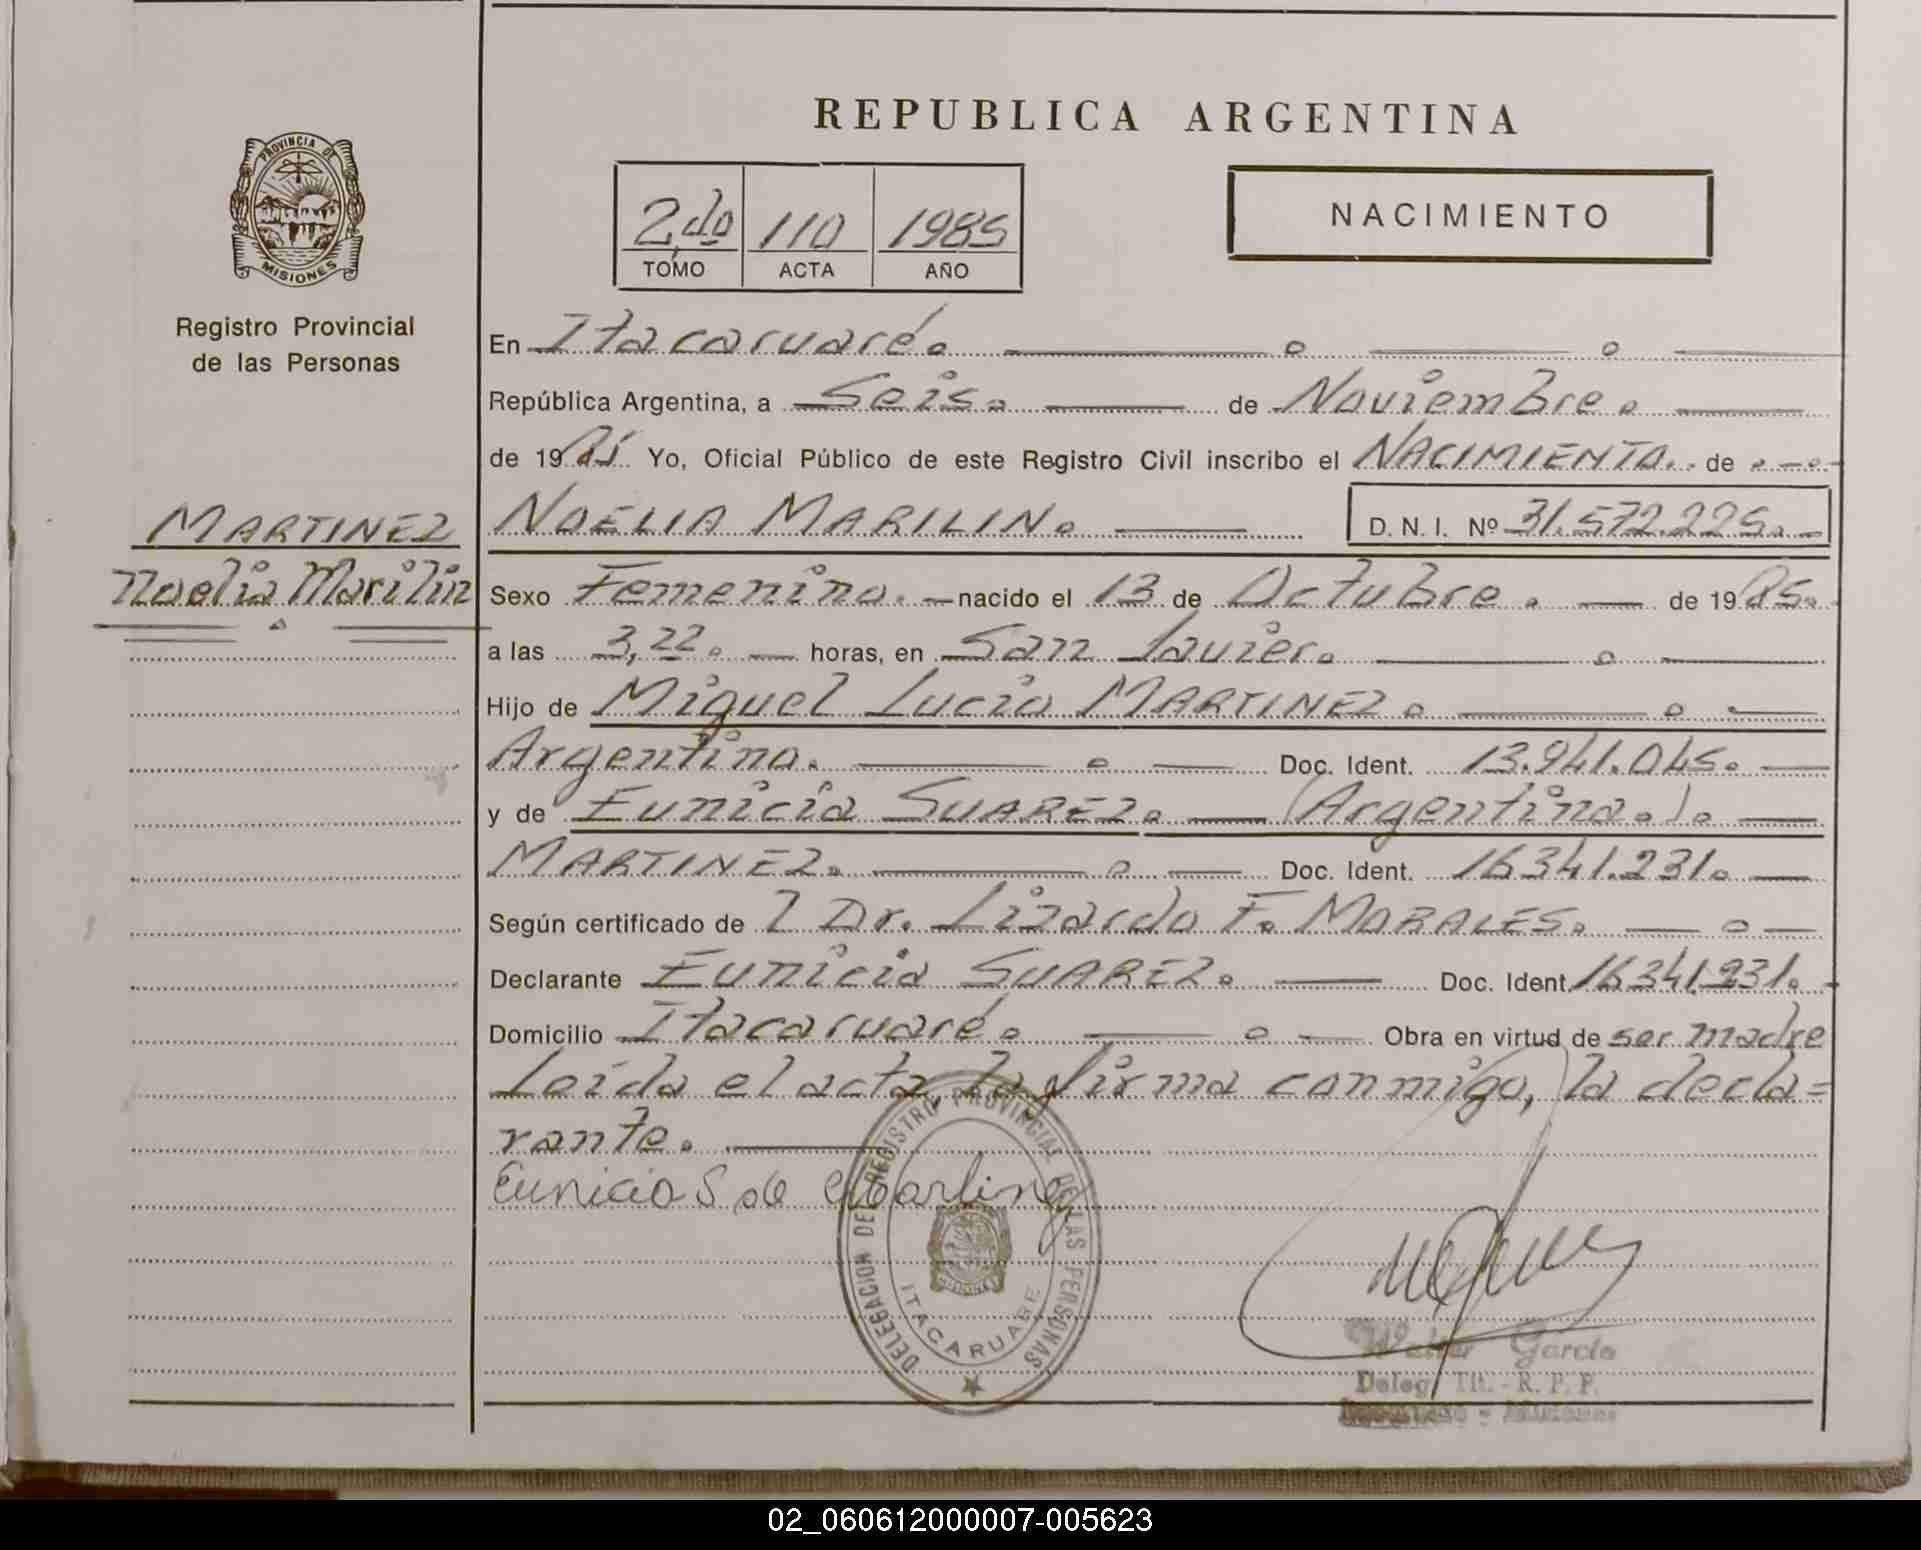 REPUBLICA ARGENTINA
PROVINCIA DE
MISIONES
Registro Provincial
de las Personas
2do 110 1985
TOMO ACTA AÑO
NACIMIENTO
En Itacaruaré.
República Argentina, a Seis. de Noviembre.
de 1985 Yo, Oficial Público de este Registro Civil inscribo el NACIMIENTO. de
MARTINEZ
Noelia Marilin
NOELIA MARILIN. D. N. I. Nº 31.572.225.
Sexo Femenino. nacido el 13 de Octubre. de 1985.
a las 3,22. horas, en San Javier.
Hijo de Miguel Lucio MARTINEZ.
Argentino. Doc. Ident. 13.941.045.
y de Eunicia SUAREZ. (Argentina.).
MARTINEZ. Doc. Ident. 16341.231.
Según certificado de Dr. Lizardo F. MORALES.
Declarante Eunicia SUAREZ. Doc. Ident. 16341.231.
Domicilio Itacaruaré. Obra en virtud de ser madre
Leída el acta, la firma conmigo, la decla=
rante.
Eunicia S de Martinez
DELEGACION DEL REGISTRO PROVINCIAL DE LAS PERSONAS
MISIONES
ITACARUARE
Walter García
Deleg. Tit. - R. P. P.
02_060612000007-005623